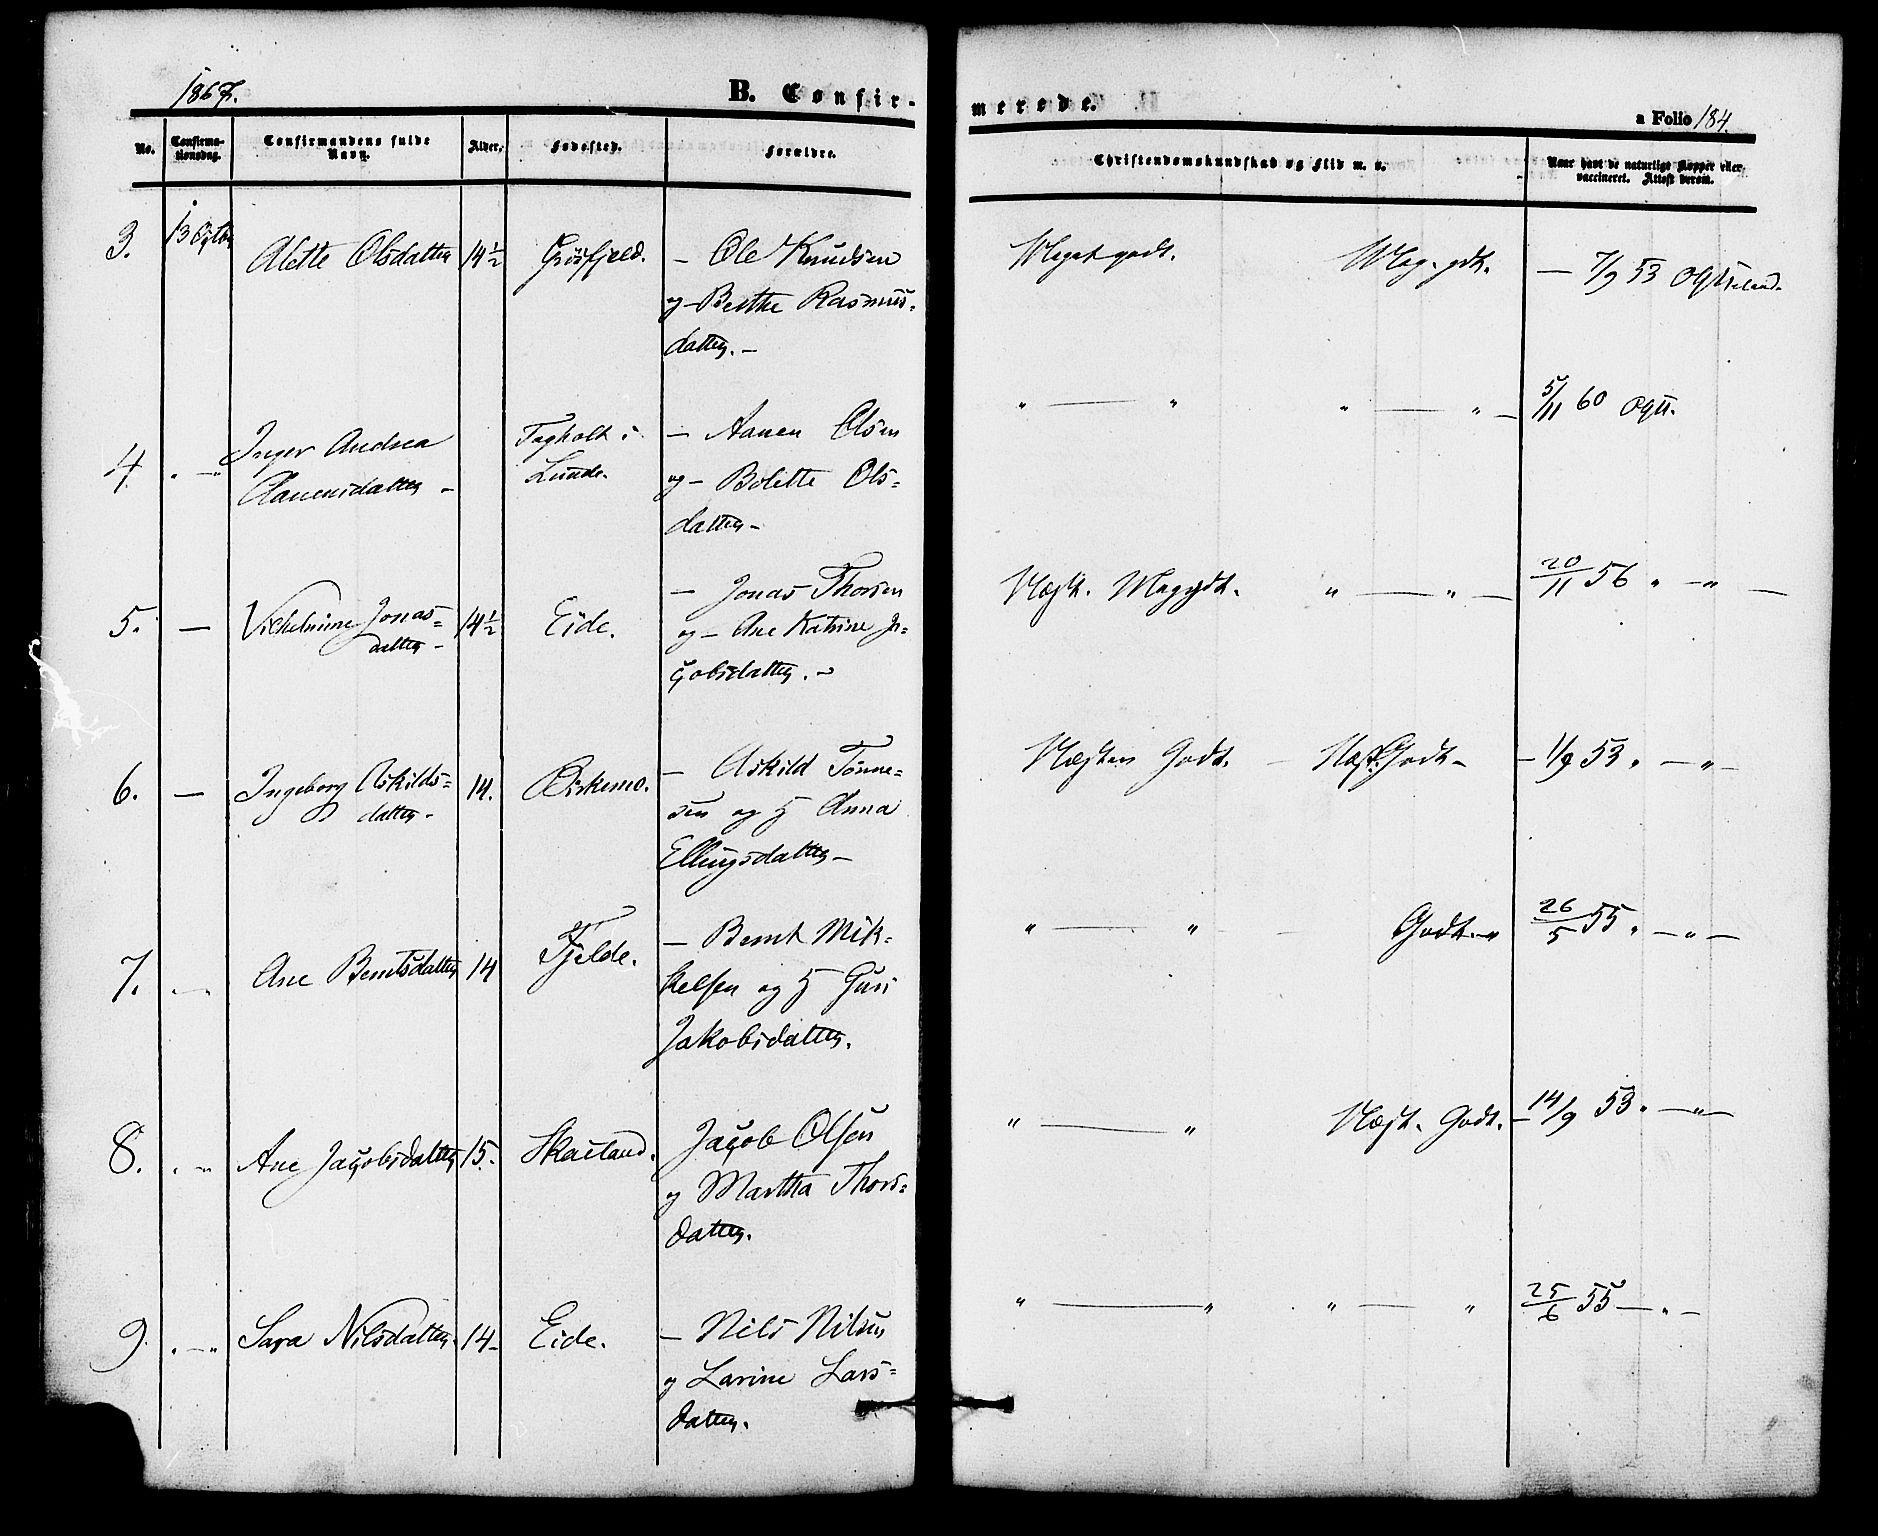 1867.
B. Confir-
merede.
a Folio 184.
No.
Confirma-
tionsdag.
Confirmandens fulde
Navn.
Alder.
Fødested.
Forældre.
Christendomskundskab og Flid m. v.
Naar havt de naturlige Kopper eller
vaccineret. Attest derom.
3.
13 Octbr
Alette Olsdatter
14½
Grøsfjeld.
- Ole Knudsen
og - Berthe Rasmus=
datter. -
Meget godt.
Meg. gdt.
- 7/9 53
4
" - "
Inger Andrea
Aanensdatter -
Tagholt i
Lunde.
- Aanen Olsen
og - Bolette Ols=
datter -
" — "
" — " -
5/11 60
5.
-
Vilhelmine Jonas=
datter -
14½
Eide.
- Jonas Thorsen
og - Ane Katrine Ja=
cobsdatter. -
Næst. Meg gdt.
" — " -
20/11 56 " - " -
6.
-
Ingeborg Askilds=
datter -
14.
Birkemo.
- Askild Tønne=
sen og H Anna
Ellingsdatter -
Næsten Godt. -
Næst. Godt -
- 1/9 53 " - " -
7.
" - "
Ane Berntsdatter
14
Fjelde.
- Bernt Mik=
kelsen og H Guri
Jakobsdatter.
" — " -
Godt. -
26/5 55 " - " -
8.
" - "
Ane Jacobsdatter
15.
Skaeland.
Jacob Olsen
og Martha Thors=
datter.
" — "
Næst. Godt.
- 14/9 53 " - " -
9.
" - "
Sara Nilsdatter.
14 -
Eide.
- Nils Nilsen
og Larine Lars=
datter.
" — "
" — "
25/6 55 - " -